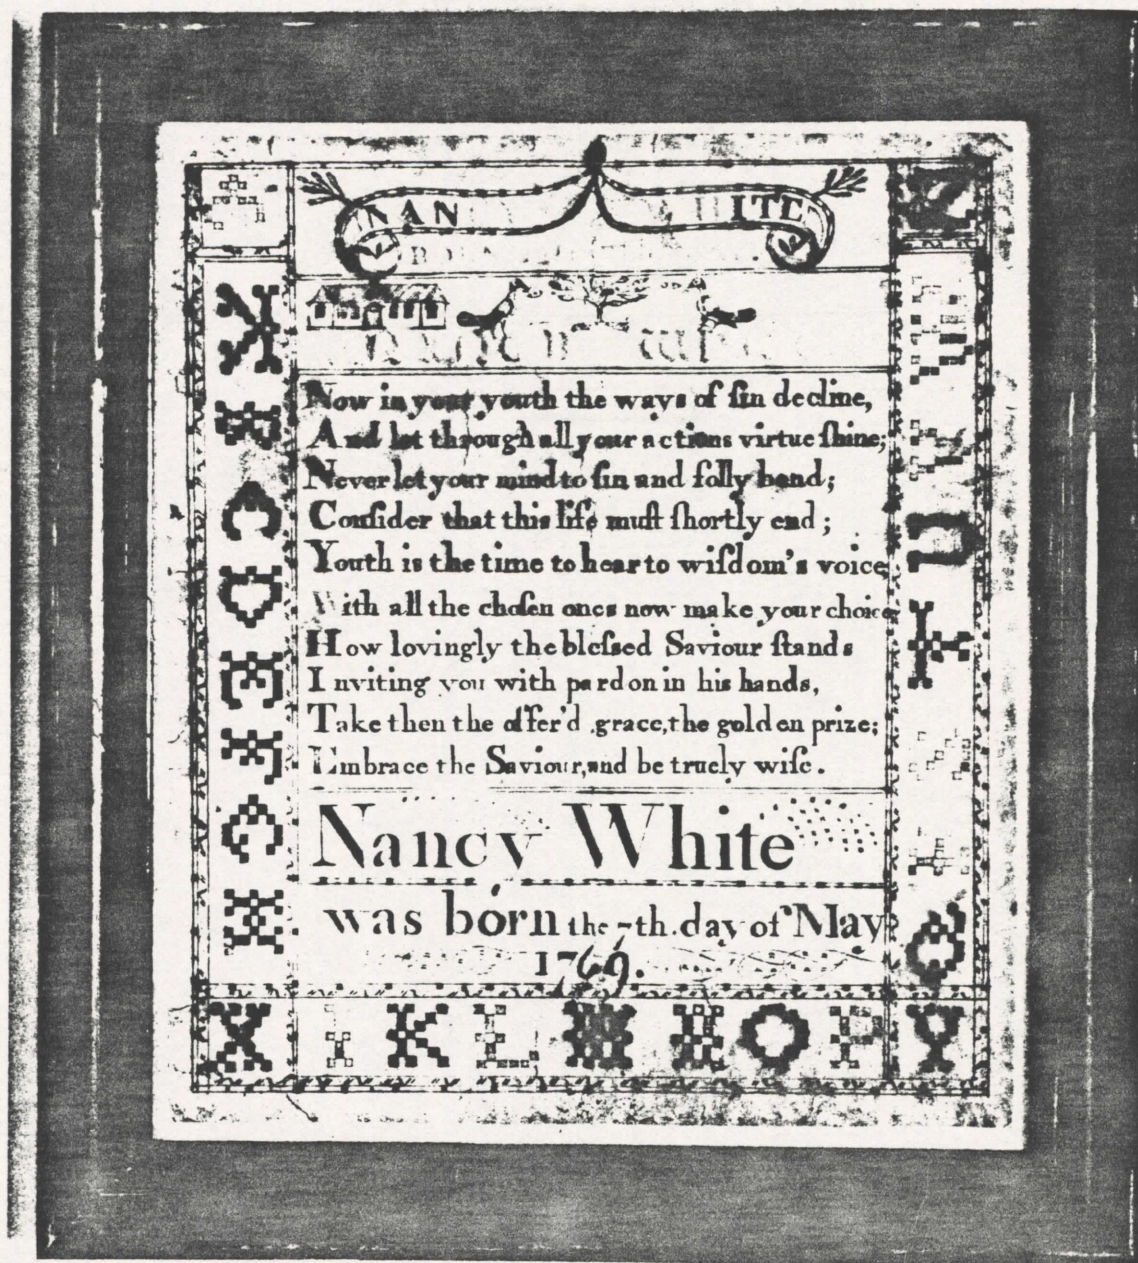 NAN ITE
Now in your youth the ways of ſin decline,
And let through all your actions virtue ſhine;
Never let your mind to ſin and folly bend;
Conſider that this life muſt ſhortly end;
Youth is the time to hear to wiſdom's voice
With all the choſen ones now make your choice
How lovingly the bleſsed Saviour ſtands
Inviting you with pardon in his hands,
Take then the offer'd grace, the golden prize;
Embrace the Saviour, and be truely wiſe.
Nancy White
was born the 7th. day of May
1769.
A
B
C
D
E
F
G
H
I K L M N O P
Q